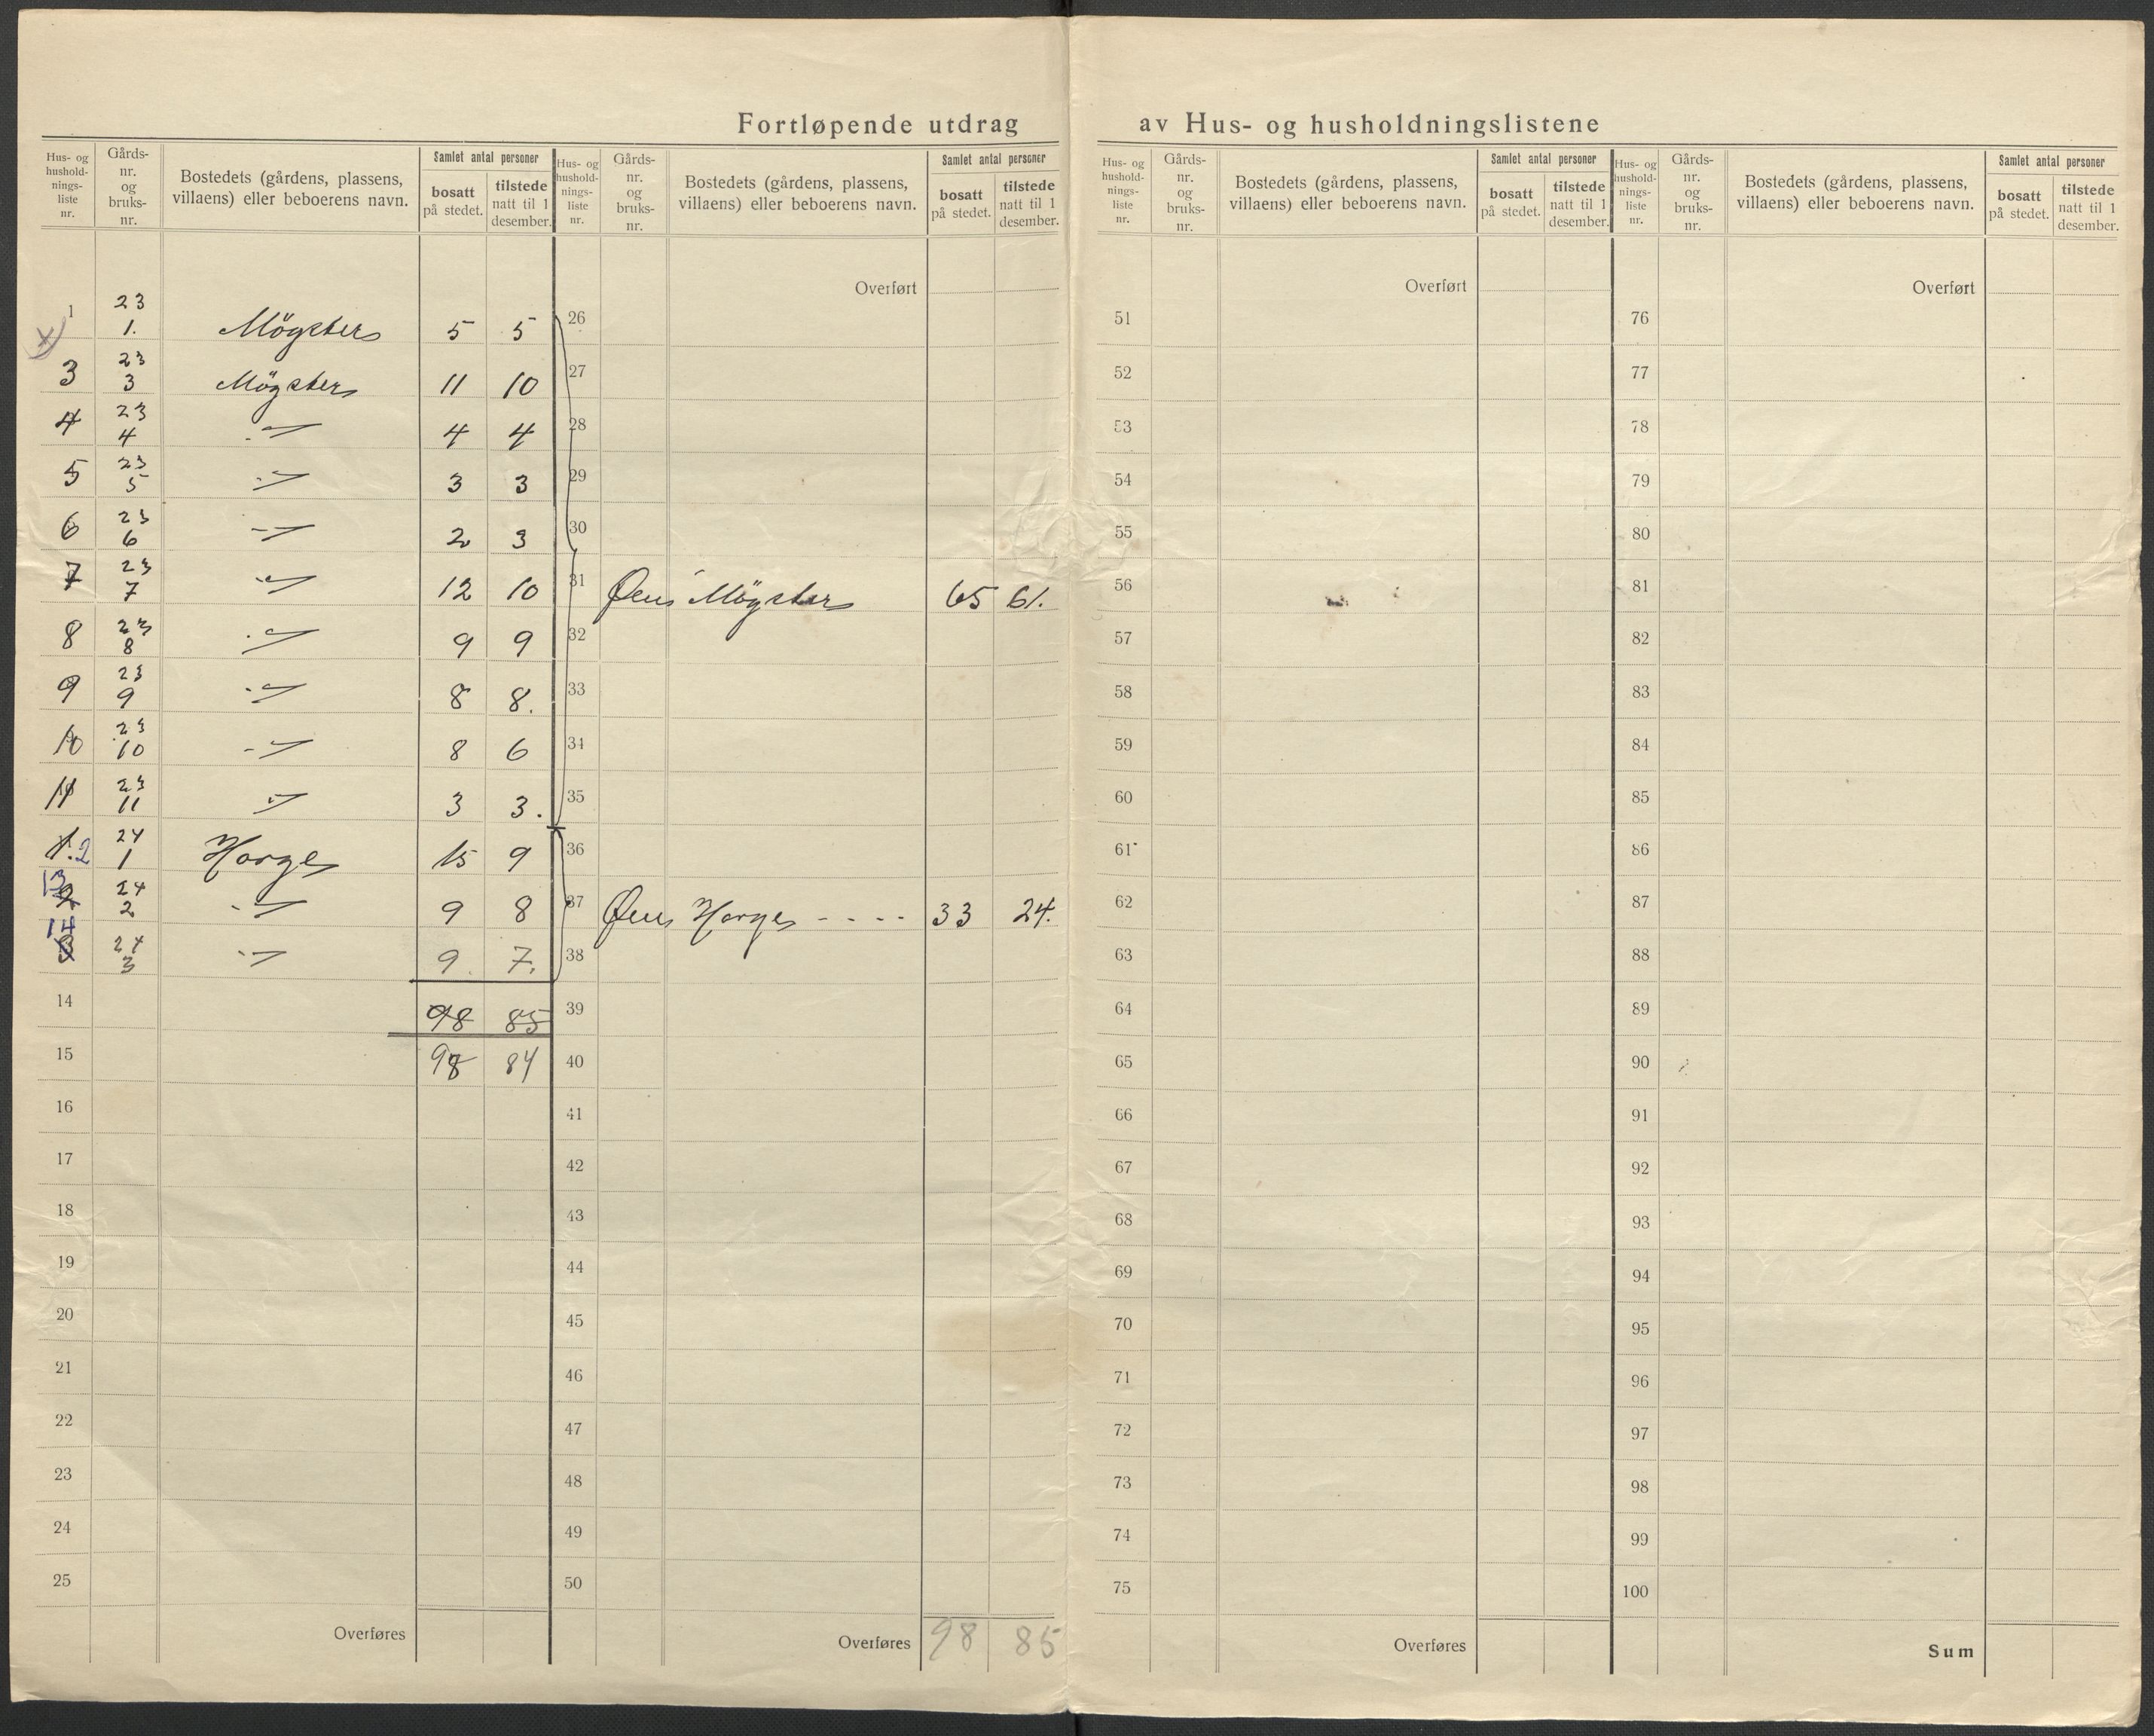 Fortløpende utdrag av Hus- og husholdningslistene
Hus- og hushold- nings- liste nr. Gårds- nr. og bruks- nr. Bostedets (gårdens, plassens, villaens) eller beboerens navn. Samlet antal personer bosatt på stedet. tilstede natt til 1 desember.
Hus- og hushold- nings- liste nr. Gårds- nr. og bruks- nr. Bostedets (gårdens, plassens, villaens) eller beboerens navn. Samlet antal personer bosatt på stedet. tilstede natt til 1 desember.
Hus- og hushold- nings- liste nr. Gårds- nr. og bruks- nr. Bostedets (gårdens, plassens, villaens) eller beboerens navn. Samlet antal personer bosatt på stedet. tilstede natt til 1 desember.
Hus- og hushold- nings- liste nr. Gårds- nr. og bruks- nr. Bostedets (gårdens, plassens, villaens) eller beboerens navn. Samlet antal personer bosatt på stedet. tilstede natt til 1 desember.
1 23 1. Mögster 5 5
x)
3 23 3 Mögster 11 10
4 23 4 -"- 4 4
5 23 5 -"- 3 3
6 23 6 -"- 2 3
7 23 7 -"- 12 10
8 23 8 -"- 9 9
9 23 9 -"- 8 8.
10 23 10 -"- 8 6
11 23 11 -"- 3 3.
1.2 24 1 Horge 15 9
13 24 2 -"- 9 8
14 24 3 -"- 9. 7.
14 98 85
15 98 84
16
17
18
19
20
21
22
23
24
25
Overføres
Overført
26
27
28
29
30
31 Øens Mögster 65 61.
32
33
34
35
36
37 Øens Horge - - - - 33 24.
38
39
40
41
42
43
44
45
46
47
48
49
50
Overføres 98 85
Overført
51
52
53
54
55
56
57
58
59
60
61
62
63
64
65
66
67
68
69
70
71
72
73
74
75
Overføres
Overført
76
77
78
79
80
81
82
83
84
85
86
87
88
89
90
91
92
93
94
95
96
97
98
99
100
Sum